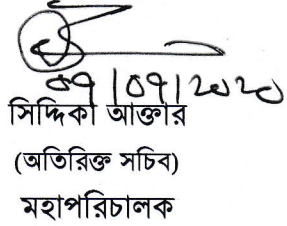 ০৭/০৭/২০২০
সিদ্দিকা আক্তার
(অতিরিক্ত সচিব)
মহাপরিচালক